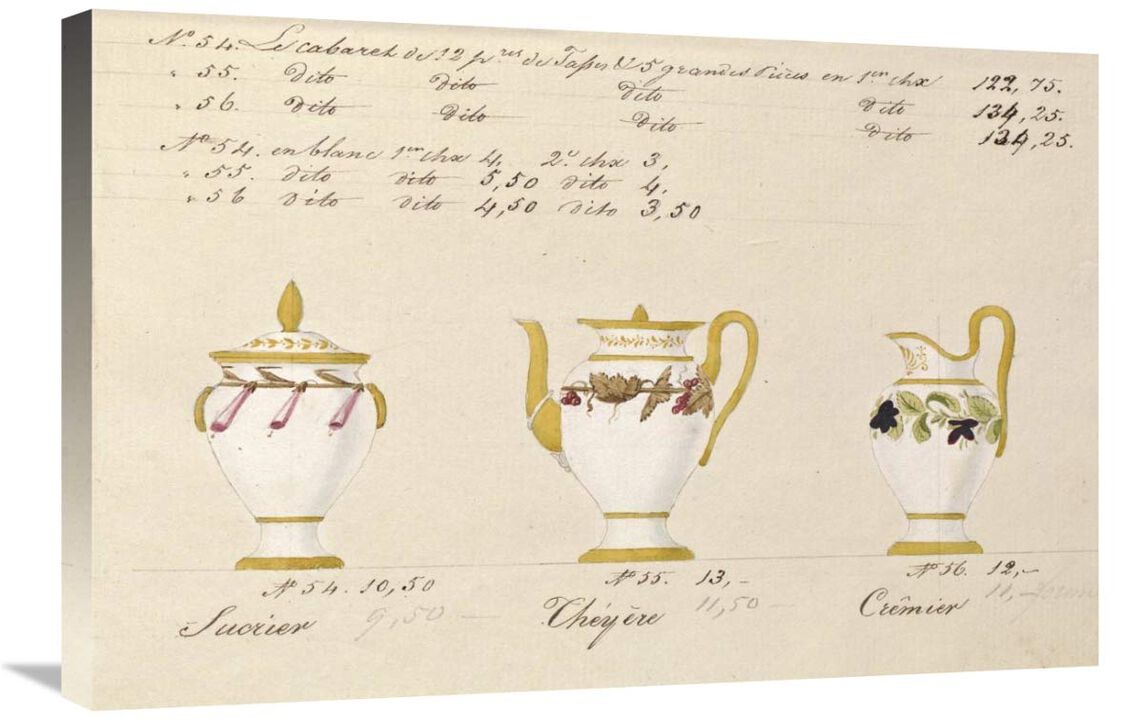 No. 54. Le cabaret de 12 p.res de Tasses & 5 grandes Pièces en 1.er chx 122,75.
" 55. Dito Dito Dito Dito 134,25.
" 56. Dito Dito Dito Dito 134,25.
No. 54. en blanc 1.er chx 4, 2.e chx 3,
" 55. dito dito 5,50 dito 4,
" 56 dito dito 4,50 dito 3,50
No. 54. 10,50 No. 55. 13,- No. 56. 12,-
Sucrier 9,50 - Théyère 11,50 - Crêmier 11,-